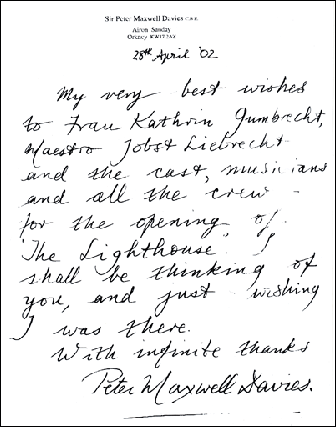 Sir Peter Maxwell Davies C.B.E.
Airon Sanday
Orkney KW17 2AZ
28th April '02
My very best wishes
to Frau Kathrin Gumbrecht,
Maestro Jobst Liebrecht
and the cast, musicians
and all the crew
for the opening of
'The Lighthouse'. I
shall be thinking of
you, and just wishing
I was there.
With infinite thanks
Peter Maxwell Davies.